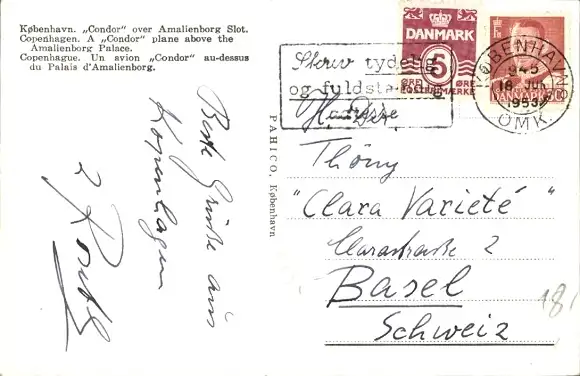 København. „Condor" over Amalienborg Slot.
Copenhagen. A „Condor" plane above the
Amalienborg Palace.
Copenhague. Un avion „Condor" au-dessus
du Palais d'Amalienborg.
Beste Grüsse aus
Kopenhagen
PAHICO, København
DANMARK
5
ØRE
ØRE
POSTFRIMÆRKE
DANMARK
Skriv tydelig
og fuldstændig
KØBENHAVN
945
18 JUN.
1953
OMK.
Thöny
"Clara Varieté"
Clarastrasse 2
Basel
Schweiz
181